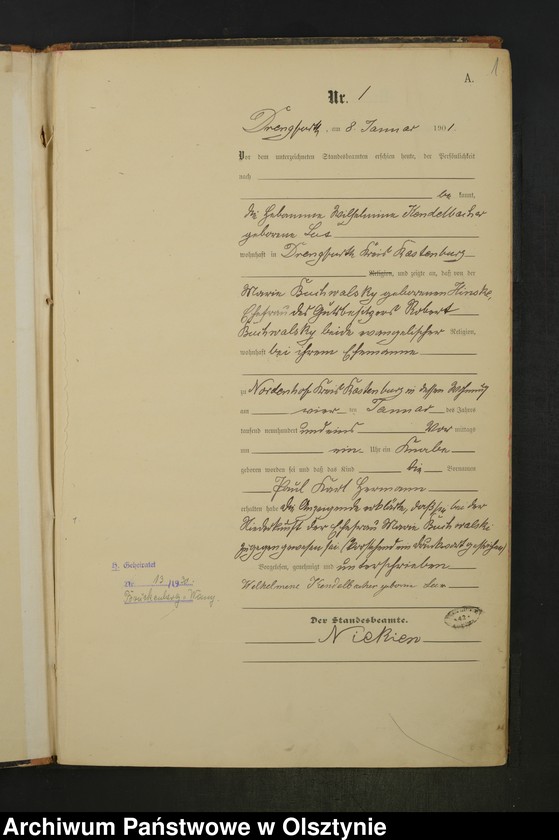 1
A.
Nr. 1
Drengfurth, am 8 Januar 1901.
Vor dem unterzeichneten Standesbeamten erschien heute, der Persönlichkeit
nach
be kannt,
die Hebamme Wilhelmine Kendelbacher
geborene
wohnhaft in Drengfurth Kreis Rastenburg
Religion, und zeigte an, daß von der
Marie Buchwalsky geborenen Hinske,
Ehefrau des Gutsbesitzers Robert
Buchwalsky beide evangelischer Religion,
wohnhaft bei ihrem Ehemanne
zu Nordenhof Kreis Rastenburg in dessen Wohnung
am vier ten Januar des Jahres
tausend neunhundert und eins Vor mittags
um ein Uhr ein Knabe
geboren worden sei und daß das Kind die Vornamen
Paul Kurt Hermann
erhalten habe Die Anzeigende erklärte, daß sie bei der
Niederkunft der Ehefrau Marie Buchwalski
zugegen gewesen sei (Vorstehend ein Druckwort gestrichen)
Vorgelesen, genehmigt und unterschrieben
Kendelbacher geborene
Der Standesbeamte.
H. Geheiratet
Nr. 13/1930
Archiwum Państwowe w Olsztynie